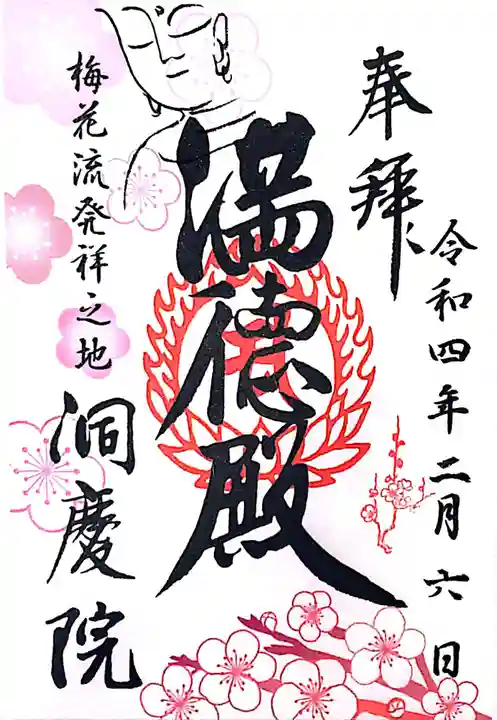 奉拝
令和四年二月六日
満徳殿
梅花流発祥之地
洞慶院